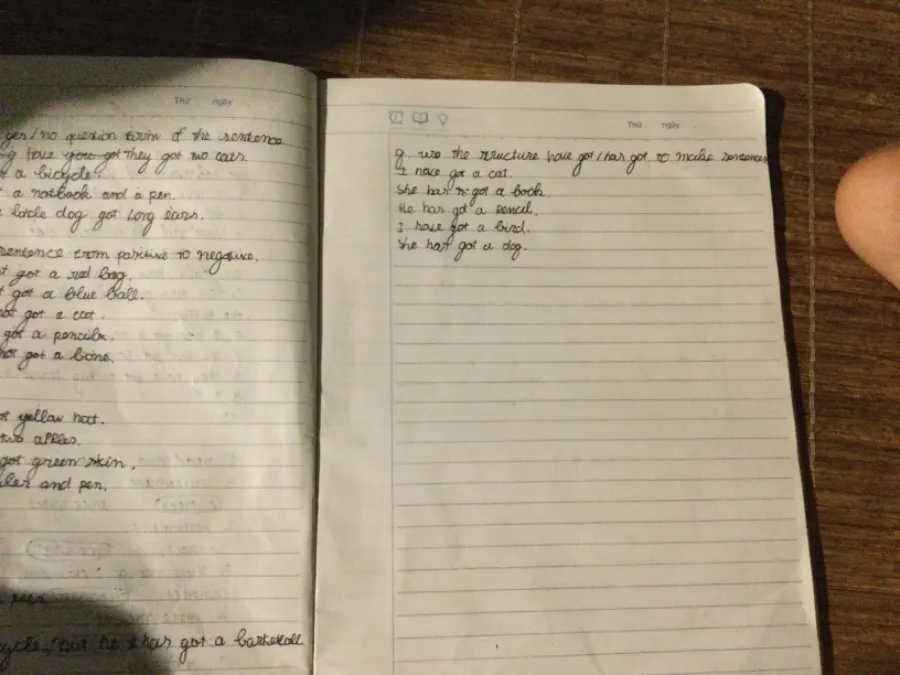 Thứ ngày
yes/no question form of the sentence.
have you got They got two cats.
a bicycle.
a notbook and a pen.
little dog got long ears.
sentence from positive to negative.
got a red bag.
got a blue ball.
not got a cat.
got a pencil
not got a bone.
yellow hat.
two apples.
got green skin.
and pen.
but he has got a
Thứ ngày
g. use the structure have got/has got to make sentences
I have got a cat.
She has n got a book.
He has got a pencil.
I have got a bird.
She has got a dog.